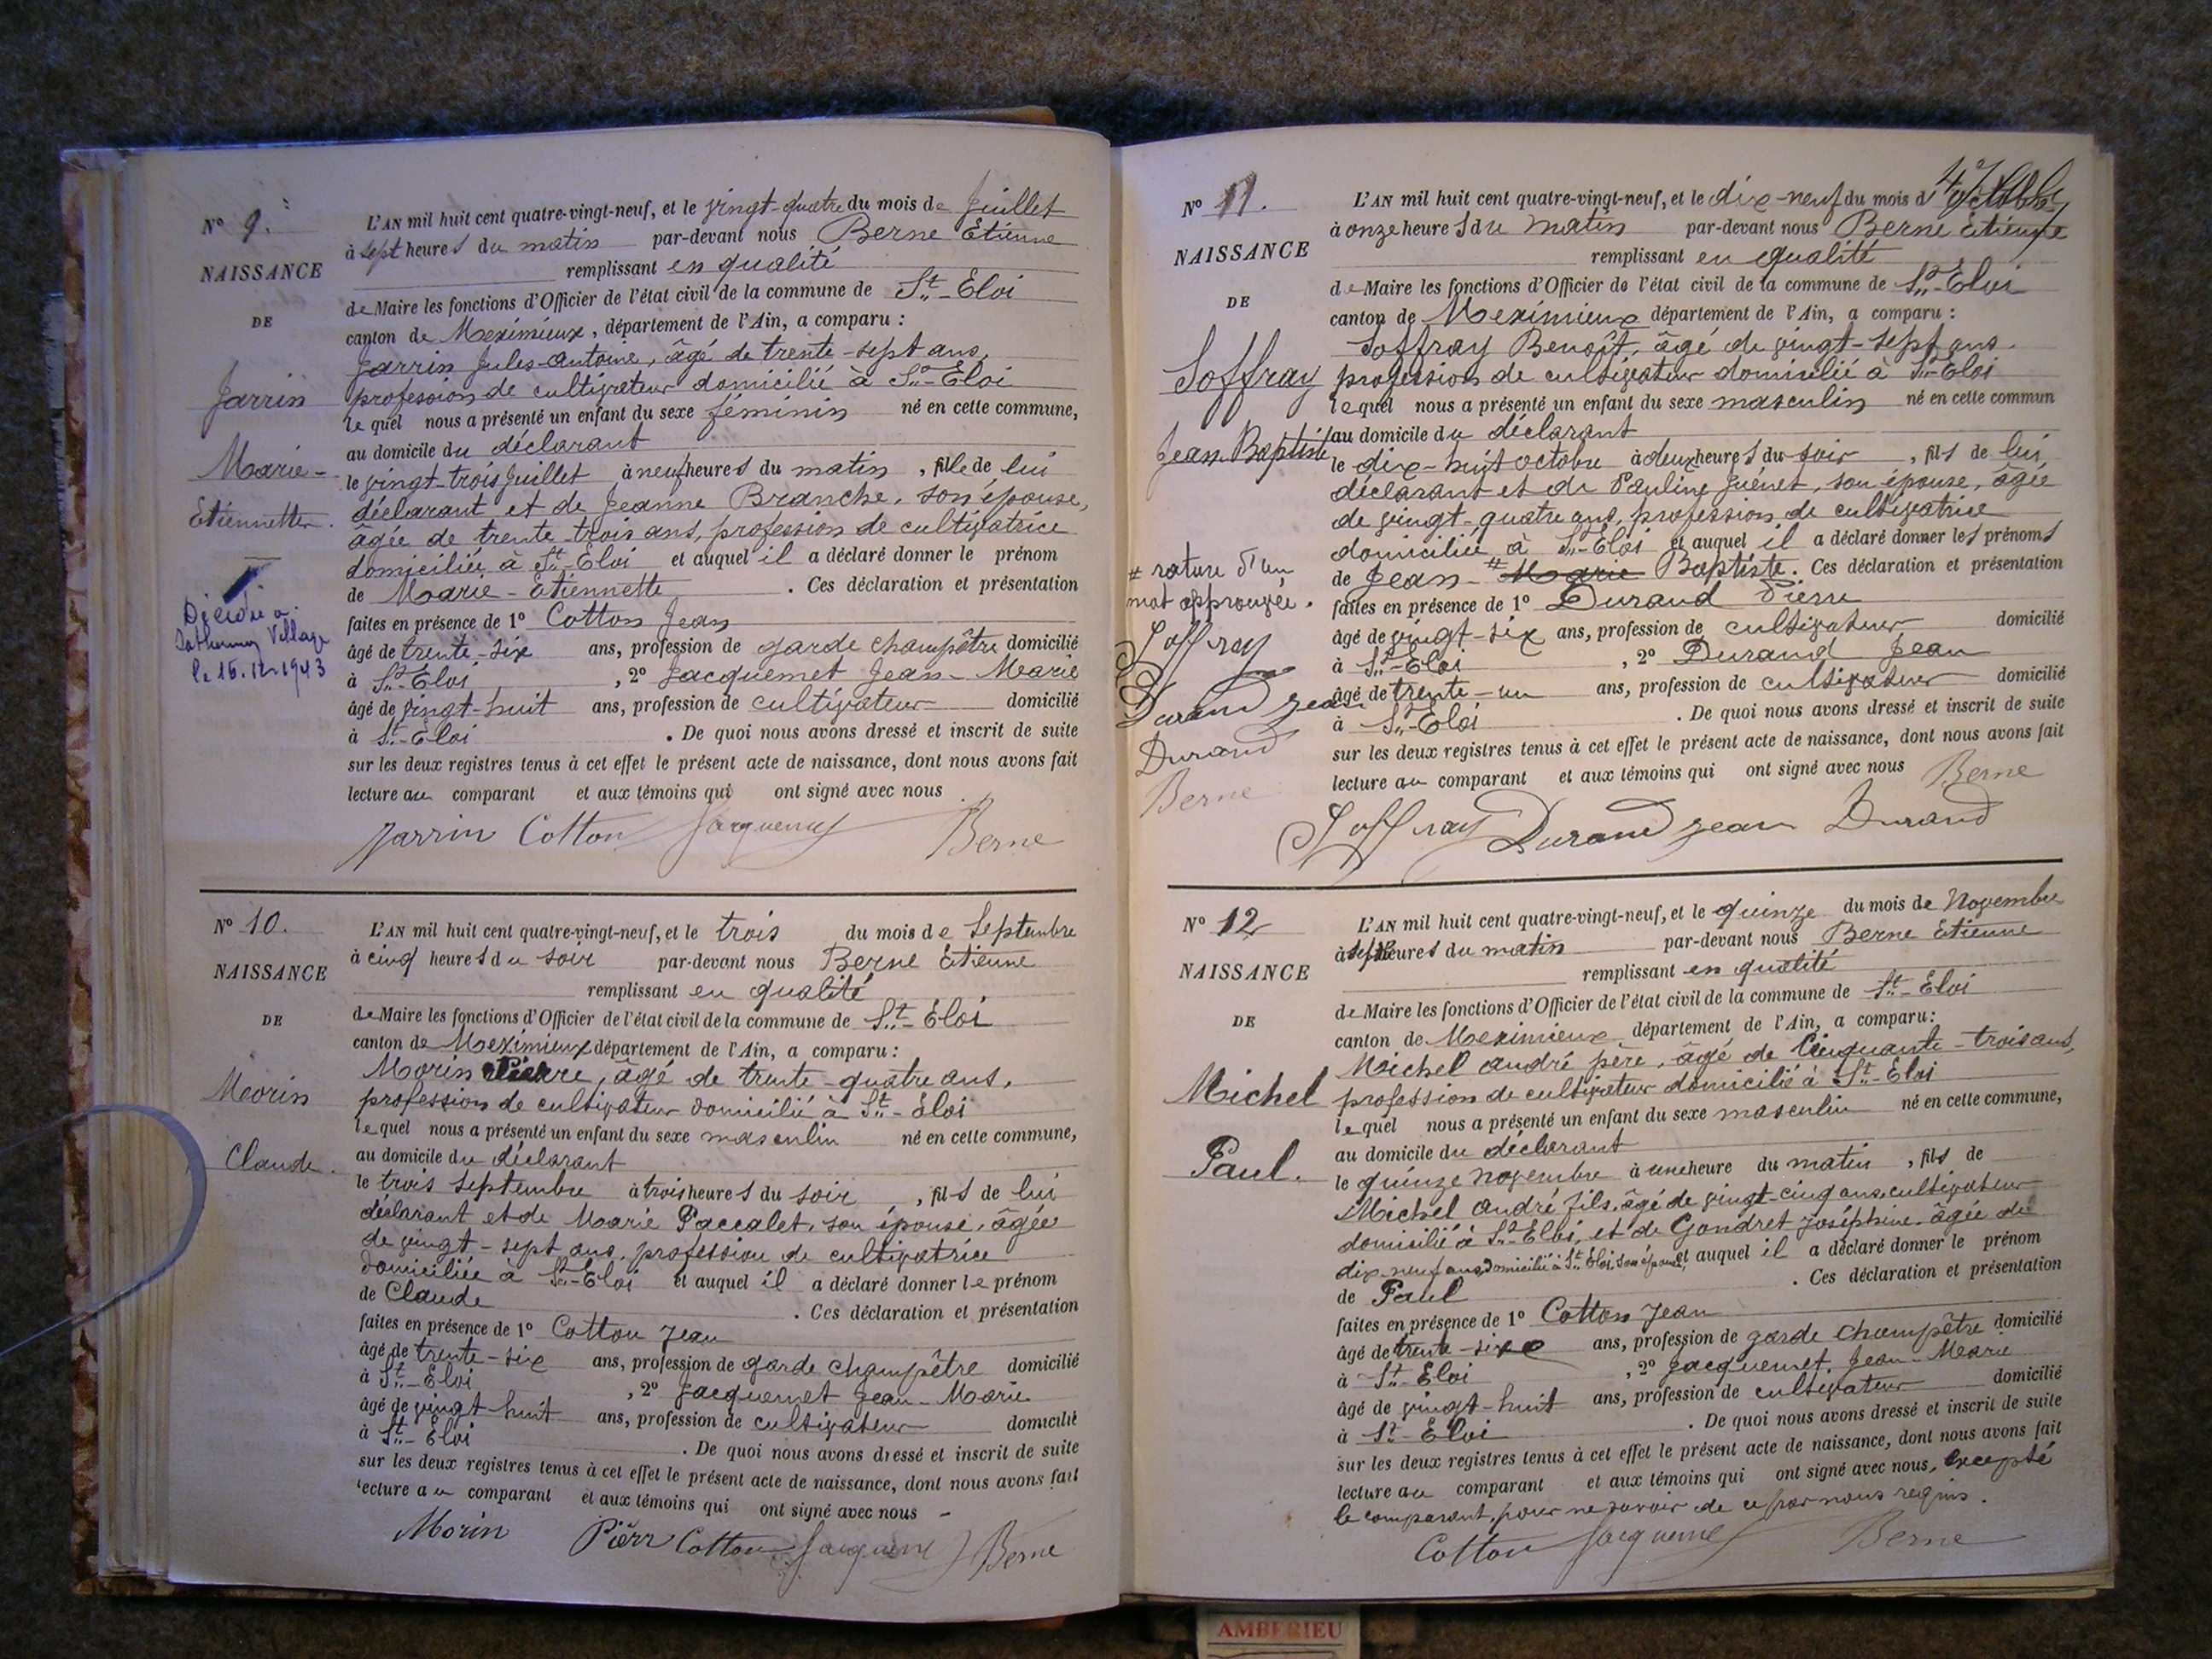 Nº 9.
NAISSANCE
DE
Jarrin
Marie-
Etiennette.
Décédée à
Sathonay Village
le 16.12.1943
L'AN mil huit cent quatre-vingt-neuf, et le vingt-quatre du mois de Juillet
à sept heures du matin par-devant nous Berne Etienne
remplissant en qualité
de Maire les fonctions d'Officier de l'état civil de la commune de St-Eloi
canton de Meximieux, département de l'Ain, a comparu :
Jarrin Jules-Antoine, âgé de trente-sept ans,
profession de cultivateur domicilié à St-Eloi
lequel nous a présenté un enfant du sexe féminin né en cette commune,
au domicile du déclarant
le vingt-trois Juillet à neuf heures du matin, fille de lui
déclarant et de Jeanne Branche, son épouse,
âgée de trente-trois ans, profession de cultivatrice
domiciliée à St-Eloi et auquel il a déclaré donner le prénom
de Marie-Etiennette. Ces déclaration et présentation
faites en présence de 1º Cotton Jean
âgé de trente-six ans, profession de garde champêtre domicilié
à St-Eloi, 2º Jacquemet Jean-Marie
âgé de vingt-huit ans, profession de cultivateur domicilié
à St-Eloi. De quoi nous avons dressé et inscrit de suite
sur les deux registres tenus à cet effet le présent acte de naissance, dont nous avons fait
lecture au comparant et aux témoins qui ont signé avec nous.
Jarrin Cotton Jacquemet Berne
Nº 10.
NAISSANCE
DE
Morin
Claude.
L'AN mil huit cent quatre-vingt-neuf, et le trois du mois de Septembre
à cinq heures du soir par-devant nous Berne Etienne
remplissant en qualité
de Maire les fonctions d'Officier de l'état civil de la commune de St-Eloi
canton de Meximieux département de l'Ain, a comparu :
Morin Pierre, âgé de trente-quatre ans,
profession de cultivateur domicilié à St-Eloi
lequel nous a présenté un enfant du sexe masculin né en cette commune,
au domicile du déclarant
le trois Septembre à trois heures du soir, fils de lui
déclarant et de Marie Paccalet, son épouse, âgée
de vingt-sept ans, profession de cultivatrice
domiciliée à St-Eloi et auquel il a déclaré donner le prénom
de Claude. Ces déclaration et présentation
faites en présence de 1º Cotton Jean
âgé de trente-six ans, profession de garde champêtre domicilié
à St-Eloi, 2º Jacquemet Jean-Marie
âgé de vingt-huit ans, profession de cultivateur domicilié
à St-Eloi. De quoi nous avons dressé et inscrit de suite
sur les deux registres tenus à cet effet le présent acte de naissance, dont nous avons fait
lecture au comparant et aux témoins qui ont signé avec nous -
Morin Pierr Cotton Jacquemet Berne
Nº 11.
NAISSANCE
DE
Soffray
Jean Baptiste
# rature d'un
mot approuvée.
Soffray
Durand jean
Durand
Berne
L'AN mil huit cent quatre-vingt-neuf, et le dix-neuf du mois d'Octobre
à onze heures du matin par-devant nous Berne Etienne
remplissant en qualité
de Maire les fonctions d'Officier de l'état civil de la commune de St-Eloi
canton de Meximieux département de l'Ain, a comparu :
Soffray Benoît, âgé de vingt-sept ans.
profession de cultivateur domicilié à St-Eloi
lequel nous a présenté un enfant du sexe masculin né en cette commun
au domicile du déclarant
le dix-huit octobre à deux heures du soir, fils de lui
déclarant et de Pauline Guénet, son épouse, âgée
de vingt-quatre ans, profession de cultivatrice
domiciliée à St-Eloi et auquel il a déclaré donner les prénoms
de Jean-# Marie Baptiste. Ces déclaration et présentation
faites en présence de 1º Durand Pierre
âgé de vingt-six ans, profession de cultivateur domicilié
à St-Eloi, 2º Durand Jean
âgé de trente-un ans, profession de cultivateur domicilié
à St-Eloi. De quoi nous avons dressé et inscrit de suite
sur les deux registres tenus à cet effet le présent acte de naissance, dont nous avons fait
lecture au comparant et aux témoins qui ont signé avec nous Berne
Soffray Durand jean Durand
Nº 12
NAISSANCE
DE
Michel
Paul.
L'AN mil huit cent quatre-vingt-neuf, et le quinze du mois de Novembre
à sept heures du matin par-devant nous Berne Etienne
remplissant en qualité
de Maire les fonctions d'Officier de l'état civil de la commune de St-Eloi
canton de Meximieux département de l'Ain, a comparu :
Michel andré père, âgé de Cinquante-trois ans,
profession de cultivateur domicilié à St-Eloi
lequel nous a présenté un enfant du sexe masculin né en cette commune,
au domicile du déclarant
le quinze novembre à une heure du matin, fils de
Michel andré fils, âgé de vingt-cinq ans, cultivateur
domicilié à St-Eloi, et de Gondret joséphine, âgée de
dix-neuf ans, domicilié à St-Eloi, son épouse, et auquel il a déclaré donner le prénom
de Paul. Ces déclaration et présentation
faites en présence de 1º Cotton Jean
âgé de trente-six ans, profession de garde champêtre domicilié
à St-Eloi, 2º Jacquemet Jean-Marie
âgé de vingt-huit ans, profession de cultivateur domicilié
à St-Eloi. De quoi nous avons dressé et inscrit de suite
sur les deux registres tenus à cet effet le présent acte de naissance, dont nous avons fait
lecture au comparant et aux témoins qui ont signé avec nous, excepté
le comparant, pour ne savoir de ce par nous requis.
Cotton Jacquemet Berne
AMBERIEU